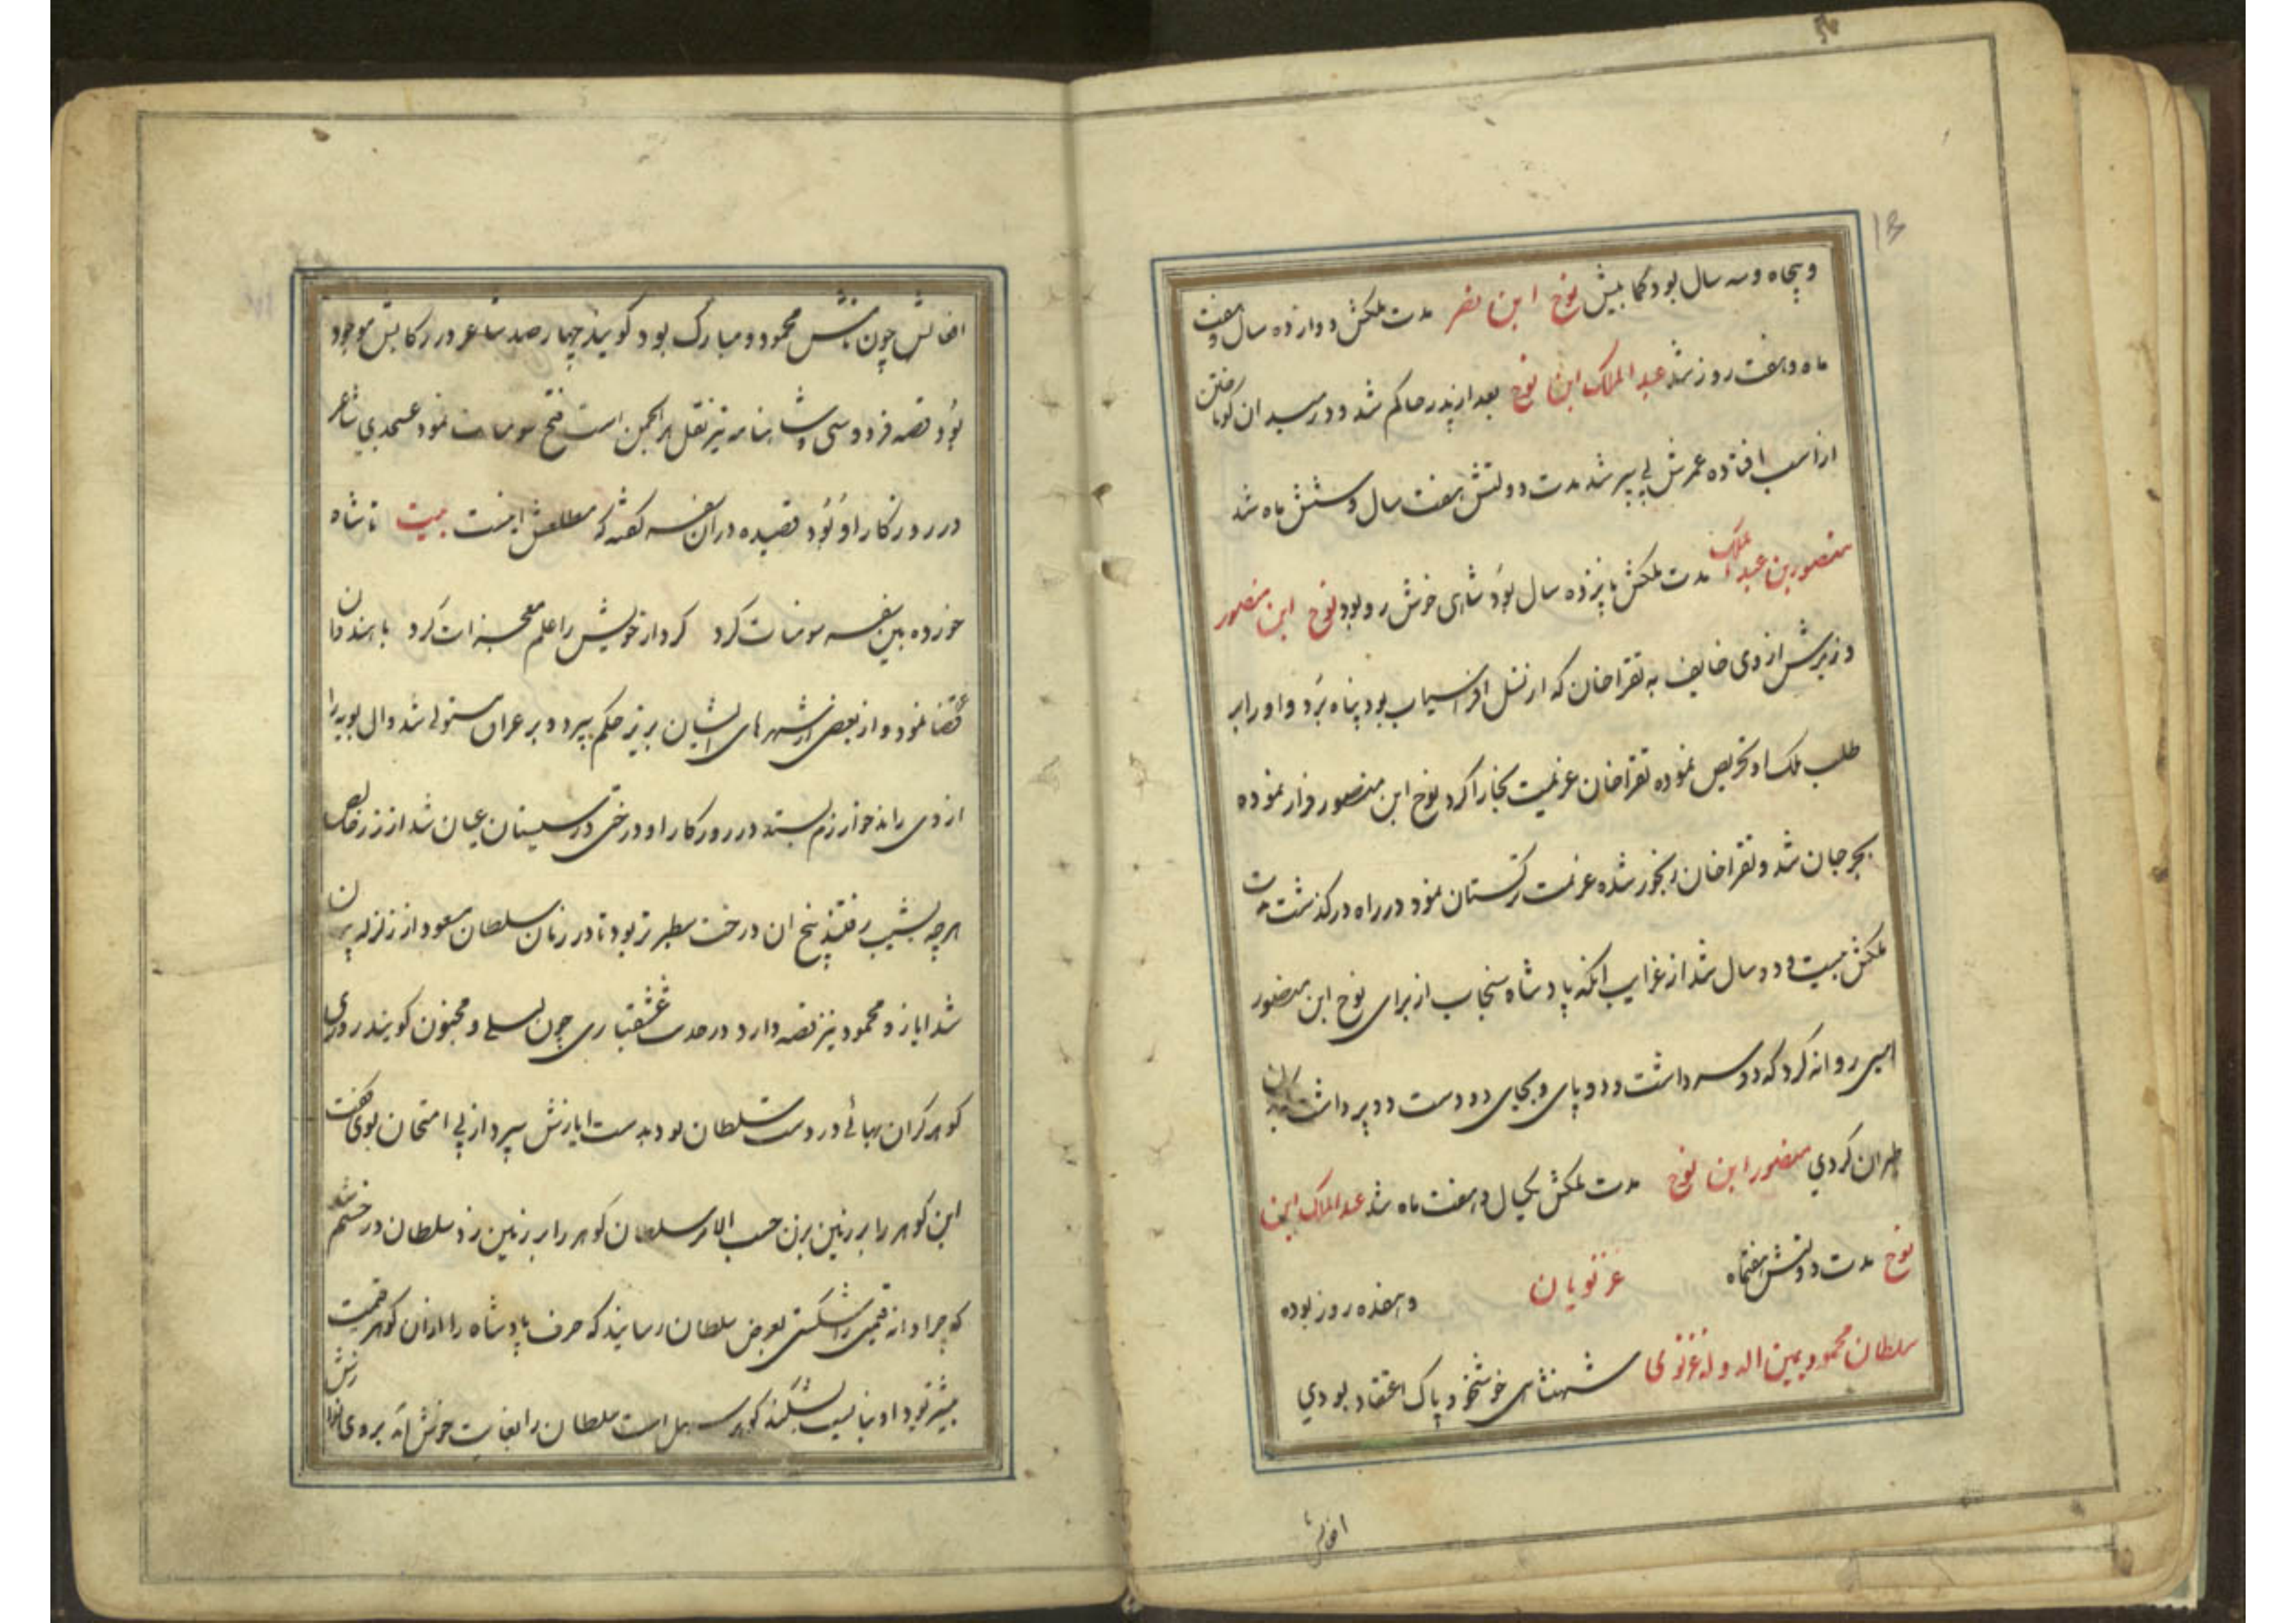 و پنجاه و سه سال بود کما بیش نوح ابن نصر مدت ملکش دوازده سال و هفت
ماه و هفت روز شد عبد الملک ابن نوح بعد از پدر حاکم شد و در میدان کوباختن
از اسب افتاده عمرش بی سپر شد مدت دولتش هفت سال و شش ماه شد
منصور بن عبد الملک مدت ملکش پانزده سال بود شاهی خوش رو بود نوح ابن منصور
وزیرش از وی خایف به بقراخان که از نسل افراسیاب بود پناه برد و او را بر
طلب ملک او تحریص نموده بقراخان عزیمت بخارا کرد نوح ابن منصور فرار نموده
بجرجان شد و بقراخان رنجور شده عزیمت ترکستان نمود در راه درگذشت مدت
ملکش بیست و دو سال شد از غرایب آنکه پادشاه سنجاب از برای نوح ابن منصور
اسبی روانه کرد که دو سر داشت و دو پای و بجای دو دست دو پر داشت
طیران کردی منصور ابن نوح مدت ملکش یکسال و هفت ماه شد عبد الملک ابن
نوح مدت دولتش هفتماه و هفده روز بوده
غزنویان
سلطان محمود یمین الدوله غزنوی شهنشاهی خوشخو و پاک اعتقاد بودی
افعالش
افعالش چون نامش محمود و مبارک بود کویند چهارصد شاعر در رکابش موجود
بود قصه فردوسی و شاهنامه نیز نقل هر انجمن است فتح سومنات نمود عسجدی شاعر
در روزکار او بود قصیده در آن سفر گفته که مطلعش اینست بیت تا شاه
خورده بین سفر سومنات کرد کردار خویش را علم معجزات کرد با هندوان
غزا نمود و از بعضی از شهرهای ایشان بریز حکم سپرد و بر عراق مستولی شد و آل بویه را
از وی راند خوارزم بستد در روزکار او درختی در سیستان عیان شد از زر خالص
هر چه بشیب رفتند بیخ آن درخت سطبرتر بود تا در زمان سلطان مسعود از زلزله پران
شد ایاز و محمود نیز قصه دارد در حدت عشقبازی چون لیلی و مجنون کویند روزی
کوهر گران بهائی در دست سلطان بود بدست ایازش سپرد از پی امتحان بوی گفت
این کوهر را بر زمین بزن حسب الامر سلطان کوهر را بر زمین زد سلطان در خشم شد
که چرا دانه قیمتی را شکستی بعرض سلطان رسانید که حرف پادشاه را از آن کوهر قیمت
بیشتر بود او نبایست بشکند کوهر سهل است سلطان را بغایت خوش آمد بر وی نوازش